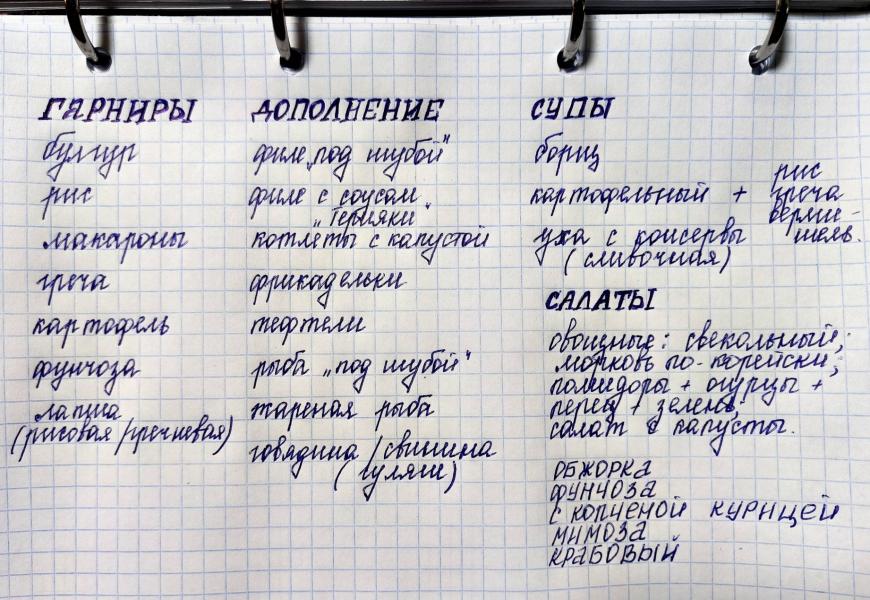 ГАРНИРЫ
булгур
рис
макароны
греча
картофель
фунчоза
лапша
(рисовая/гречневая)
ДОПОЛНЕНИЕ
филе „под шубой"
филе с соусом
„Терияки"
котлеты с капустой
фрикадельки
тефтели
рыба „под шубой"
жареная рыба
говядина / свинина
(гуляш)
СУПЫ
борщ
картофельный + рис
греча
верми-
шель.
уха с консервы
(сливочная)
САЛАТЫ
овощные: свекольный;
морковь по-корейски;
помидоры + огурцы +
перец + зелень;
салат с капусты.
ОБЖОРКА
ФУНЧОЗА
С КОПЧЕНОЙ КУРИЦЕЙ
МИМОЗА
КРАБОВЫЙ